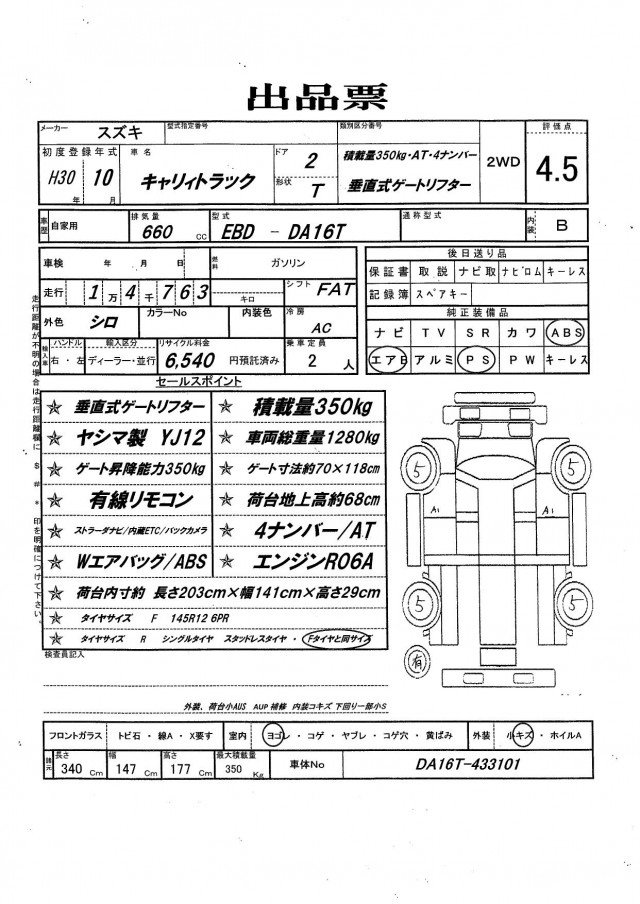 出品票
メーカー スズキ 型式指定番号 類別区分番号 2WD 評価点 4.5
初度登録年式 H30 年 10 月 車名 キャリィトラック ドア 2 形状 T 積載量350kg・AT・4ナンバー 垂直式ゲートリフター
車歴 自家用 排気量 660 CC 型式 EBD - DA16T 通称型式 内装 B
車検 年 月 日 燃料 ガソリン
走行 1万4千763 キロ シフト FAT
外色 シロ カラーNo 内装色 冷房 AC
輸入車 ハンドル 右・左 輸入区分 ディーラー・並行 リサイクル料金 6,540 円預託済み 乗車定員 2 人
後日送り品
保証書 取説 ナビ取 ナビロム キーレス
記録簿 スペアキー
純正装備品
ナビ TV SR カワ ABS
エアB アルミ PS PW キーレス
走行距離が不明の場合は走行距離欄に $ # * 印を明確につけて下さい。
セールスポイント
☆ 垂直式ゲートリフター ☆ 積載量350kg
☆ ヤシマ製 YJ12 ☆ 車両総重量1280kg
☆ ゲート昇降能力350kg ☆ ゲート寸法約70×118cm
☆ 有線リモコン ☆ 荷台地上高約68cm
☆ ストラーダナビ/内蔵ETC/バックカメラ ☆ 4ナンバー/AT
☆ Wエアバッグ/ABS ☆ エンジンR06A
☆ 荷台内寸約 長さ203cm×幅141cm×高さ29cm
☆ タイヤサイズ F 145R12 6PR
☆ タイヤサイズ R シングルタイヤ スタッドレスタイヤ ・ Fタイヤと同サイズ
5 5
A1 A1
5 5
有
検査員記入
外装、荷台小AUS AUP補修 内装コキズ 下回り一部小S
フロントガラス トビ石 ・ 線A ・ X要す 室内 ヨゴレ ・ コゲ ・ ヤブレ ・ コゲ穴 ・ 黄ばみ 外装 小キズ ・ ホイルA
諸元 長さ 340 Cm 幅 147 Cm 高さ 177 Cm 最大積載量 350 Kg 車体No DA16T-433101